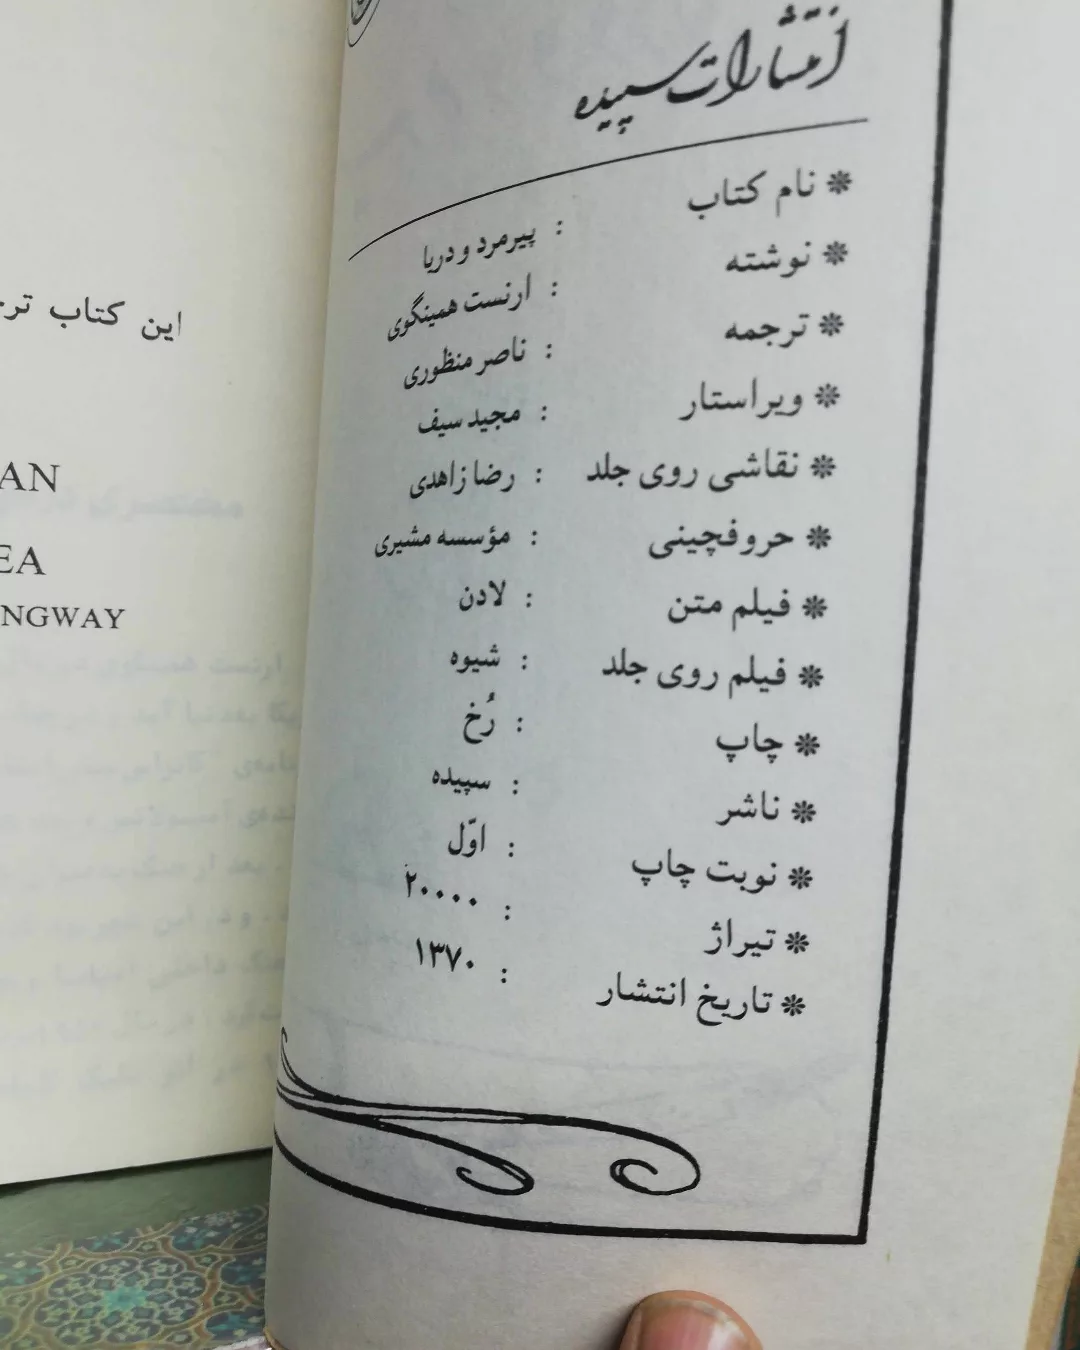 انتشارات سپیده
❊ نام کتاب : پیرمرد و دریا
❊ نوشته : ارنست همینگوی
❊ ترجمه : ناصر منظوری
❊ ویراستار : مجید سیف
❊ نقاشی روی جلد : رضا زاهدی
❊ حروفچینی : مؤسسه مشیری
❊ فیلم متن : لادن
❊ فیلم روی جلد : شیوه
❊ چاپ : رُخ
❊ ناشر : سپیده
❊ نوبت چاپ : اوّل
❊ تیراژ : ۲۰۰۰۰
❊ تاریخ انتشار : ۱۳۷۰
این کتاب
AN
EA
NGWAY